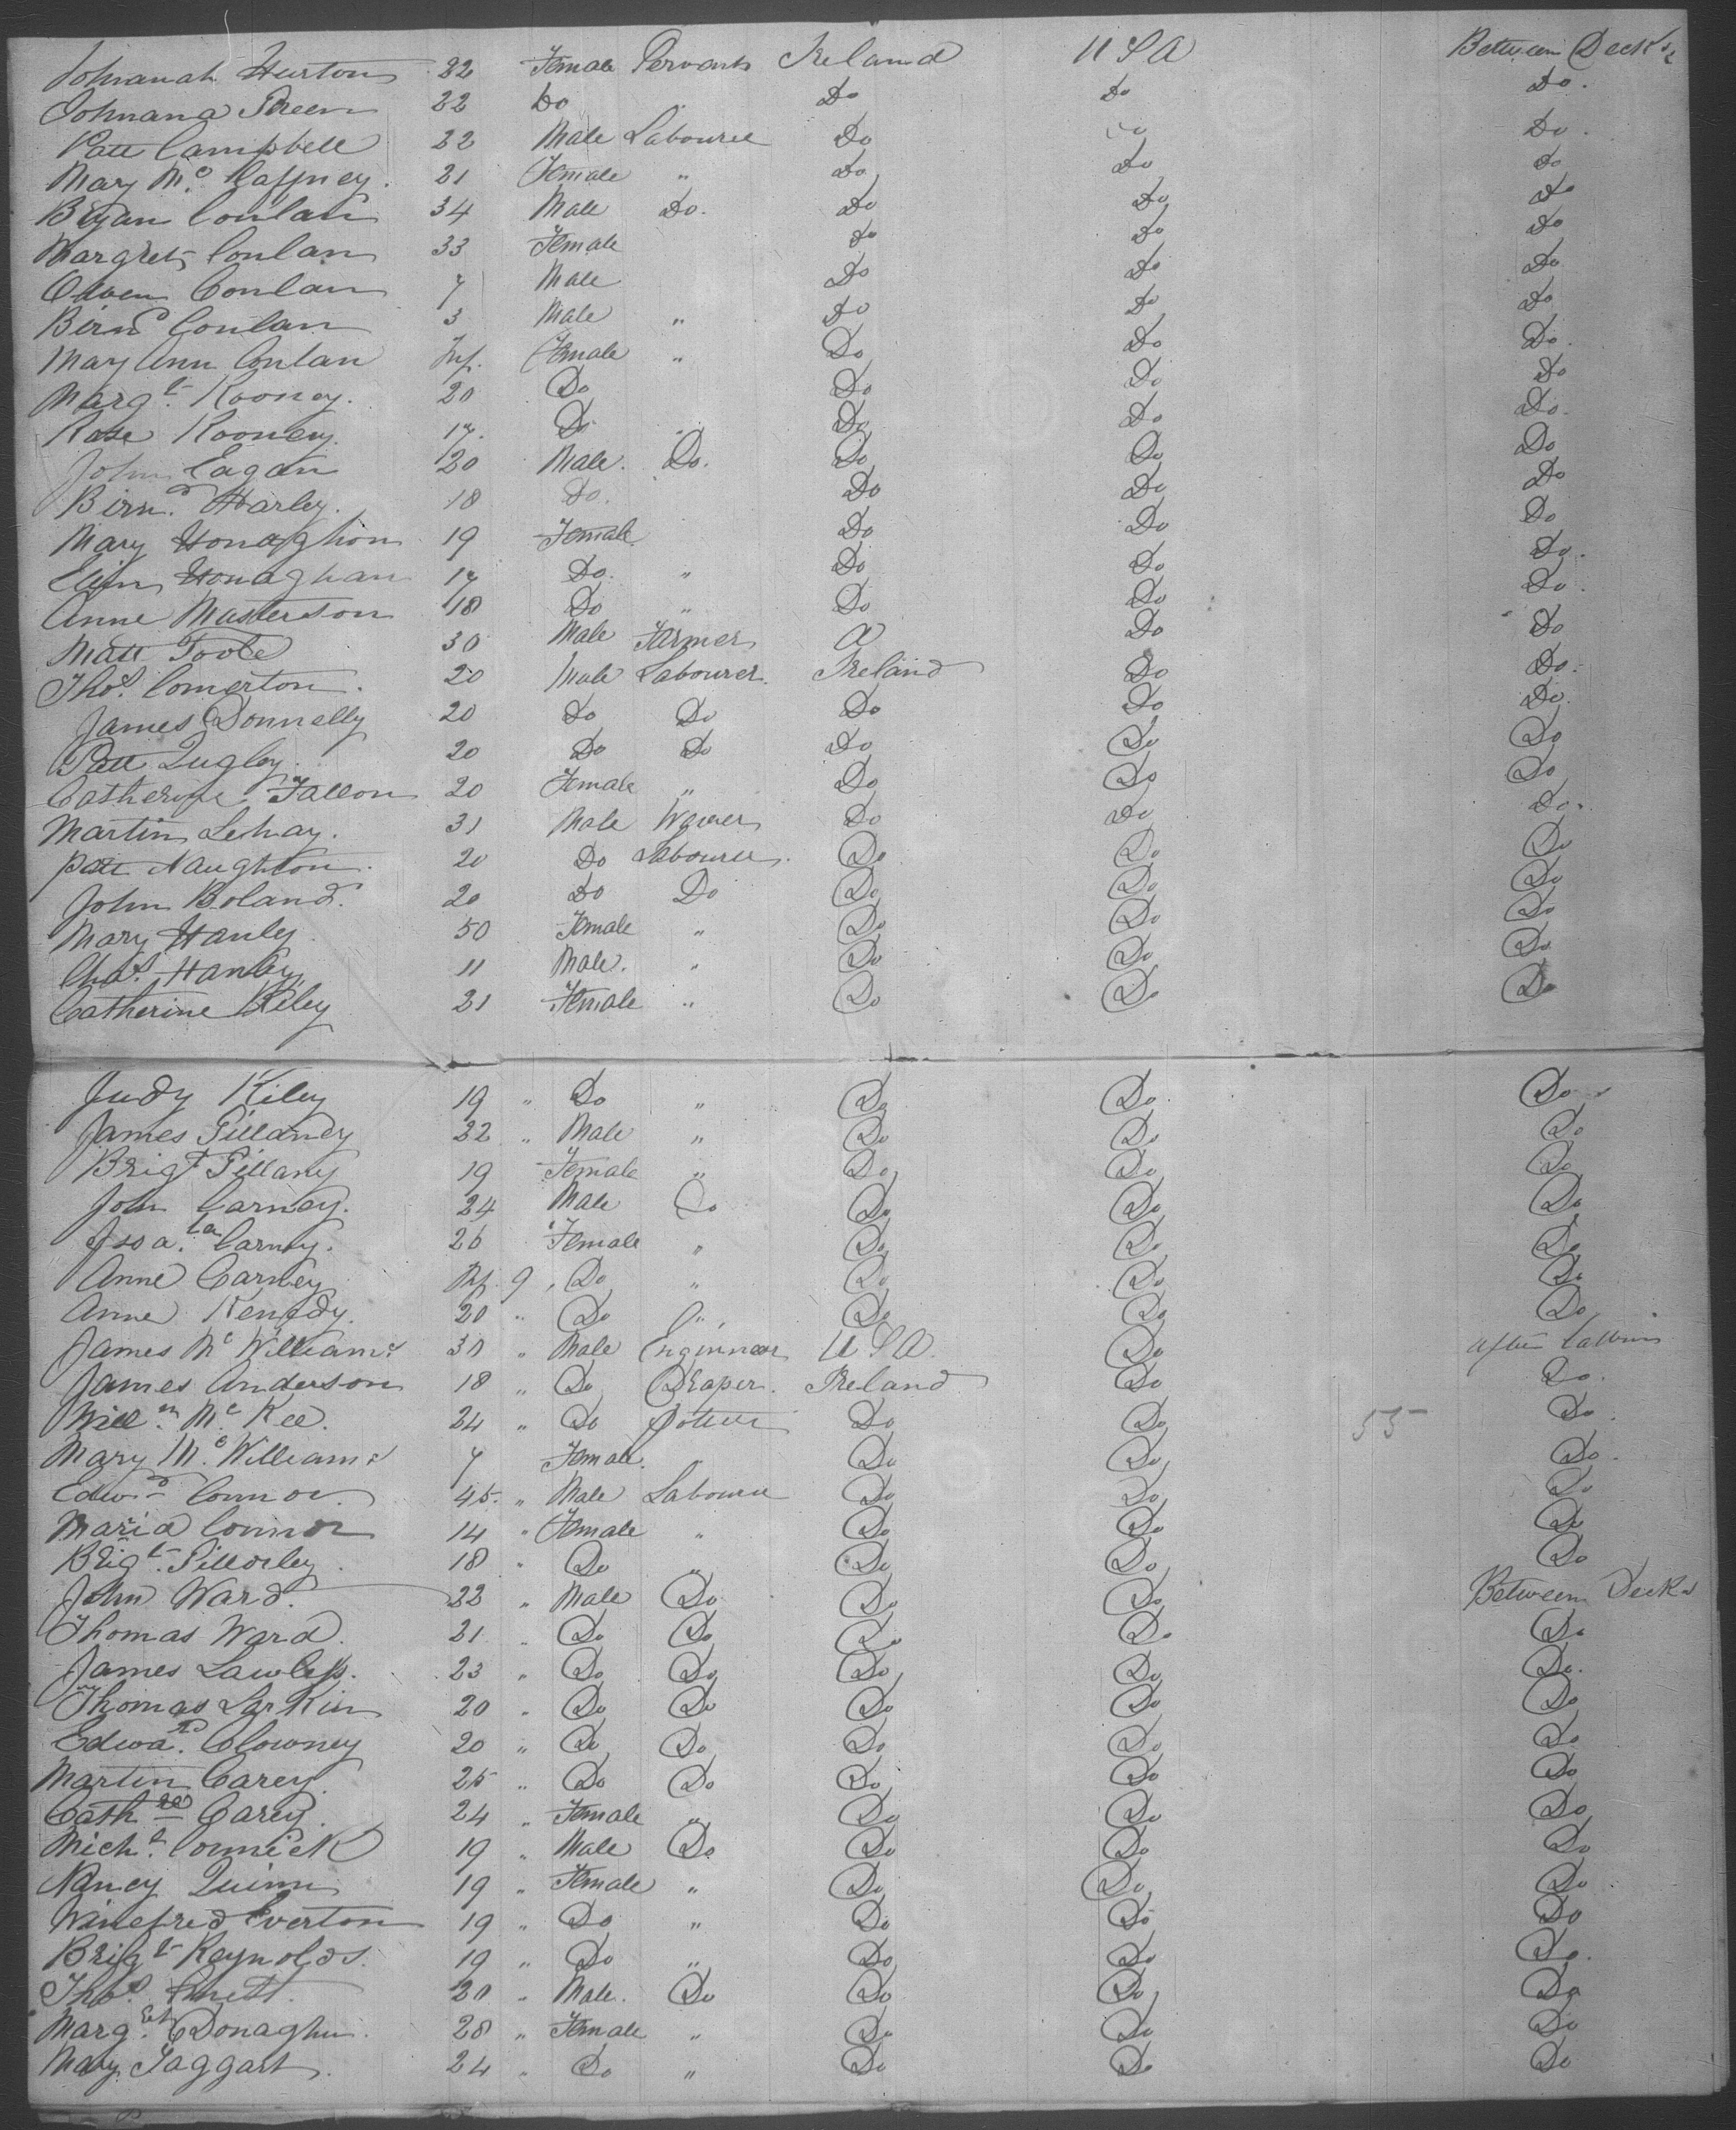 Johanah Hurton 22 Female Servant Ireland U S A Between Decks
Johnana Green 22 Do Do Do Do.
Patt Campbell 22 Male Labourer Do Do Do.
Mary Mc Caffney. 21 Female " Do Do Do
Bryan Conlan 34 Male Do. Do Do Do
Margret Conlan 33 Female Do Do Do
Owen Conlan 7 Male Do Do Do
Birnd Conlan 3 Male " Do Do Do
Mary Ann Conlan Inf. Female " Do Do Do.
Margt. Rooney. 20 Do Do Do Do
Rose Rooney. 17. Do " Do Do Do.
John Eagan 20 Male. Do. Do Do Do
Birnd. Harley. 18 Do. Do Do Do
Mary Honaghon 19 Female Do Do Do
Ellin Honaghan 17 Do. " Do Do Do.
Anne Masterson 18 Do " Do Do Do.
Matt Toole 30 Male Farmer Do Do
Thos. Comerton. 20 Male Labourer. Ireland Do Do.
James Donnelly 20 Do Do Do Do Do.
Patt Qugley. 20 Do Do Do Do Do
Catherine Fallon 20 Female " Do Do Do
Martin Lehay. 31 Male Do Do Do.
Patt Naughton. 20 Do Labourer. Do Do Do
John Boland. 20 Do Do Do Do Do
Mary Hanley. 50 Female " Do Do Do
Chas. Hanley 11 Male. " Do Do Do
Catherine Kiley 21 Female " Do Do Do
Judy Kiley 19 " Do " Do Do. Do
James 22 " Male " Do Do Do
Brigt 19 Female " Do Do Do
John Carney. 24 Male Do Do Do Do
Isoa.la Carney. 26 Female " Do Do Do
Anne Carney Inf. 9 " Do " Do Do Do
Anne Kennedy. 20 " Do " Do Do Do
James Mc Williams 30 " Male Enginneer U S A. Do After Cabbin
James Anderson 18 " Do Draper. Ireland Do Do.
Willm. Mc Kee. 24 " Do Do Do 55 Do.
Mary Mc. Williams 7 Female. Do Do Do.
Edwd Connor. 45. " Male Labourer Do Do Do
Maria Connor 14 " Female " Do Do Do
Brigt. 18 " Do " Do Do Do
John Ward. 22 " Male Do Do Do Between Decks
Thomas Ward. 21 " Do Do Do Do Do
James Lawless. 23 " Do Do Do Do Do.
Thomas Larkin 20 " Do Do Do Do Do
Edwa.rd Clowney 20 " Do Do Do Do Do
Martin Carey. 25 " Do Do Do Do Do
Cath Carey. 24 " Female " Do Do Do
Michl. Cormick 19 " Male Do Do Do Do
Nancy Quinn 19 " Female " Do Do Do
Winefred Everton 19 " Do " Do Do Do
Brigt Reynolds. 19 " Do " Do Do Do.
Thos. 20 " Male. Do Do Do Do
Marg.et Donaghu. 28 " Female " Do Do Do
Mary Taggart. 24 " Do " Do Do Do